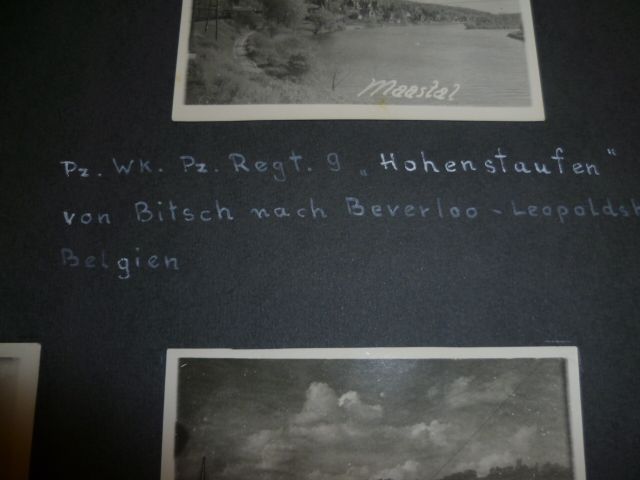 Maastal
Pz. Wk. Pz. Regt. 9 „Hohenstaufen"
von Bitsch nach Beverloo - Leopoldsb
Belgien